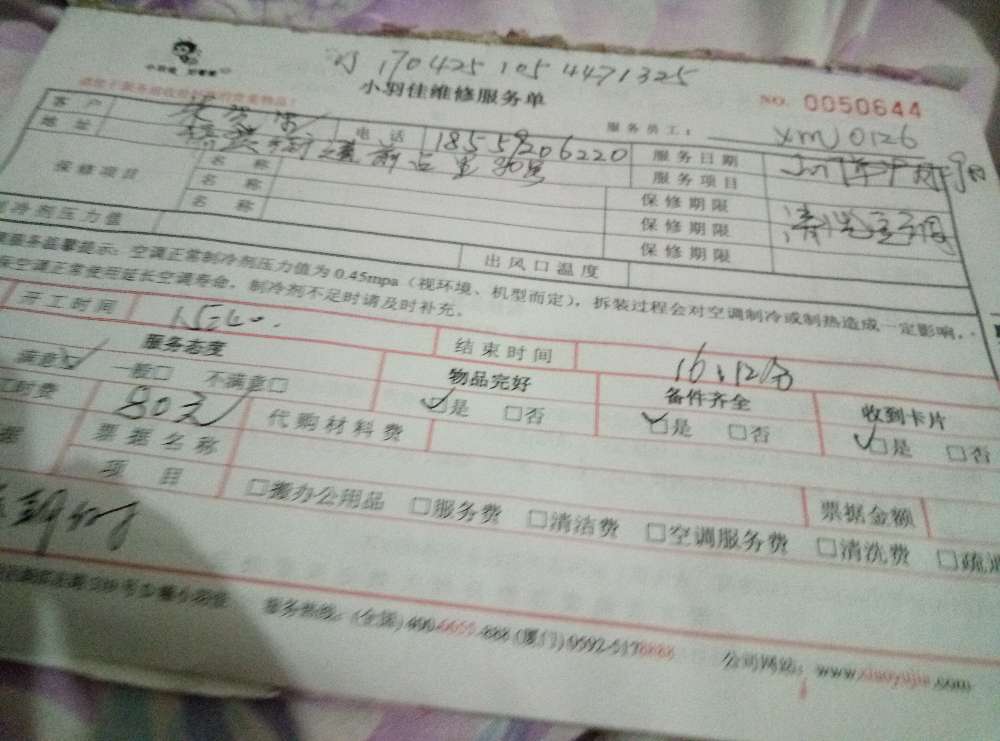 170425 1054471325
小羽佳维修服务单
NO. 0050644
服务员工：XMJ0126
客户
电话 18559206220
服务日期
地址
服务项目
保修项目
名称
保修期限
名称
保修期限
名称
保修期限
制冷剂压力值
出风口温度
服务温馨提示：空调正常制冷剂压力值为0.45mpa（视环境、机型而定），拆装过程会对空调制冷或制热造成一定影响，
空调正常使用延长空调寿命，制冷剂不足时请及时补充。
开工时间
结束时间 16:12分
服务态度
物品完好
备件齐全
收到卡片
满意☑ 一般□ 不满意□
☑是 □否
☑是 □否
☑是 □否
工时费 80元
代购材料费
票据名称
票据金额
项目
□搬办公用品 □服务费 □清洁费 □空调服务费 □清洗费
服务热线：(全国)400-6655-888 (厦门)0592-5178888
公司网站：www.xiaoyujia.com